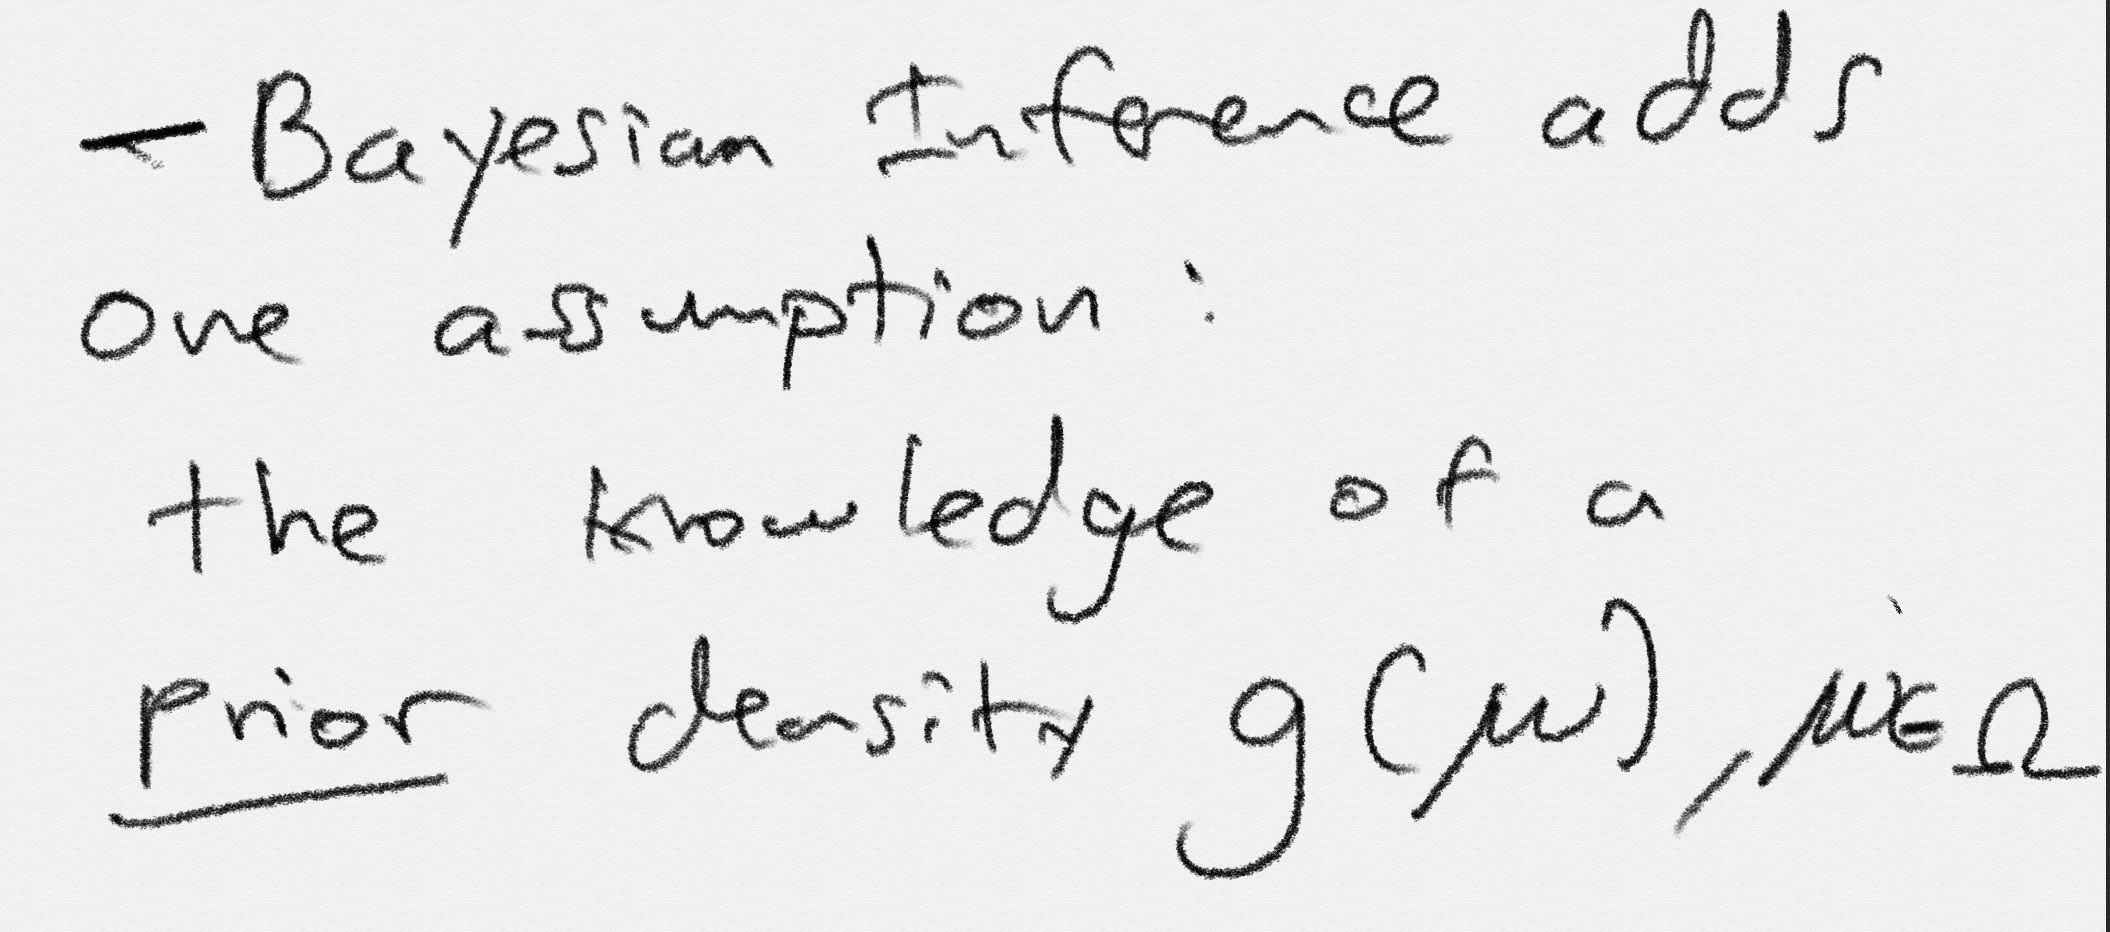 - Bayesian Inference adds
one assumption:
the knowledge of a
prior density g(μ), μ∈Ω